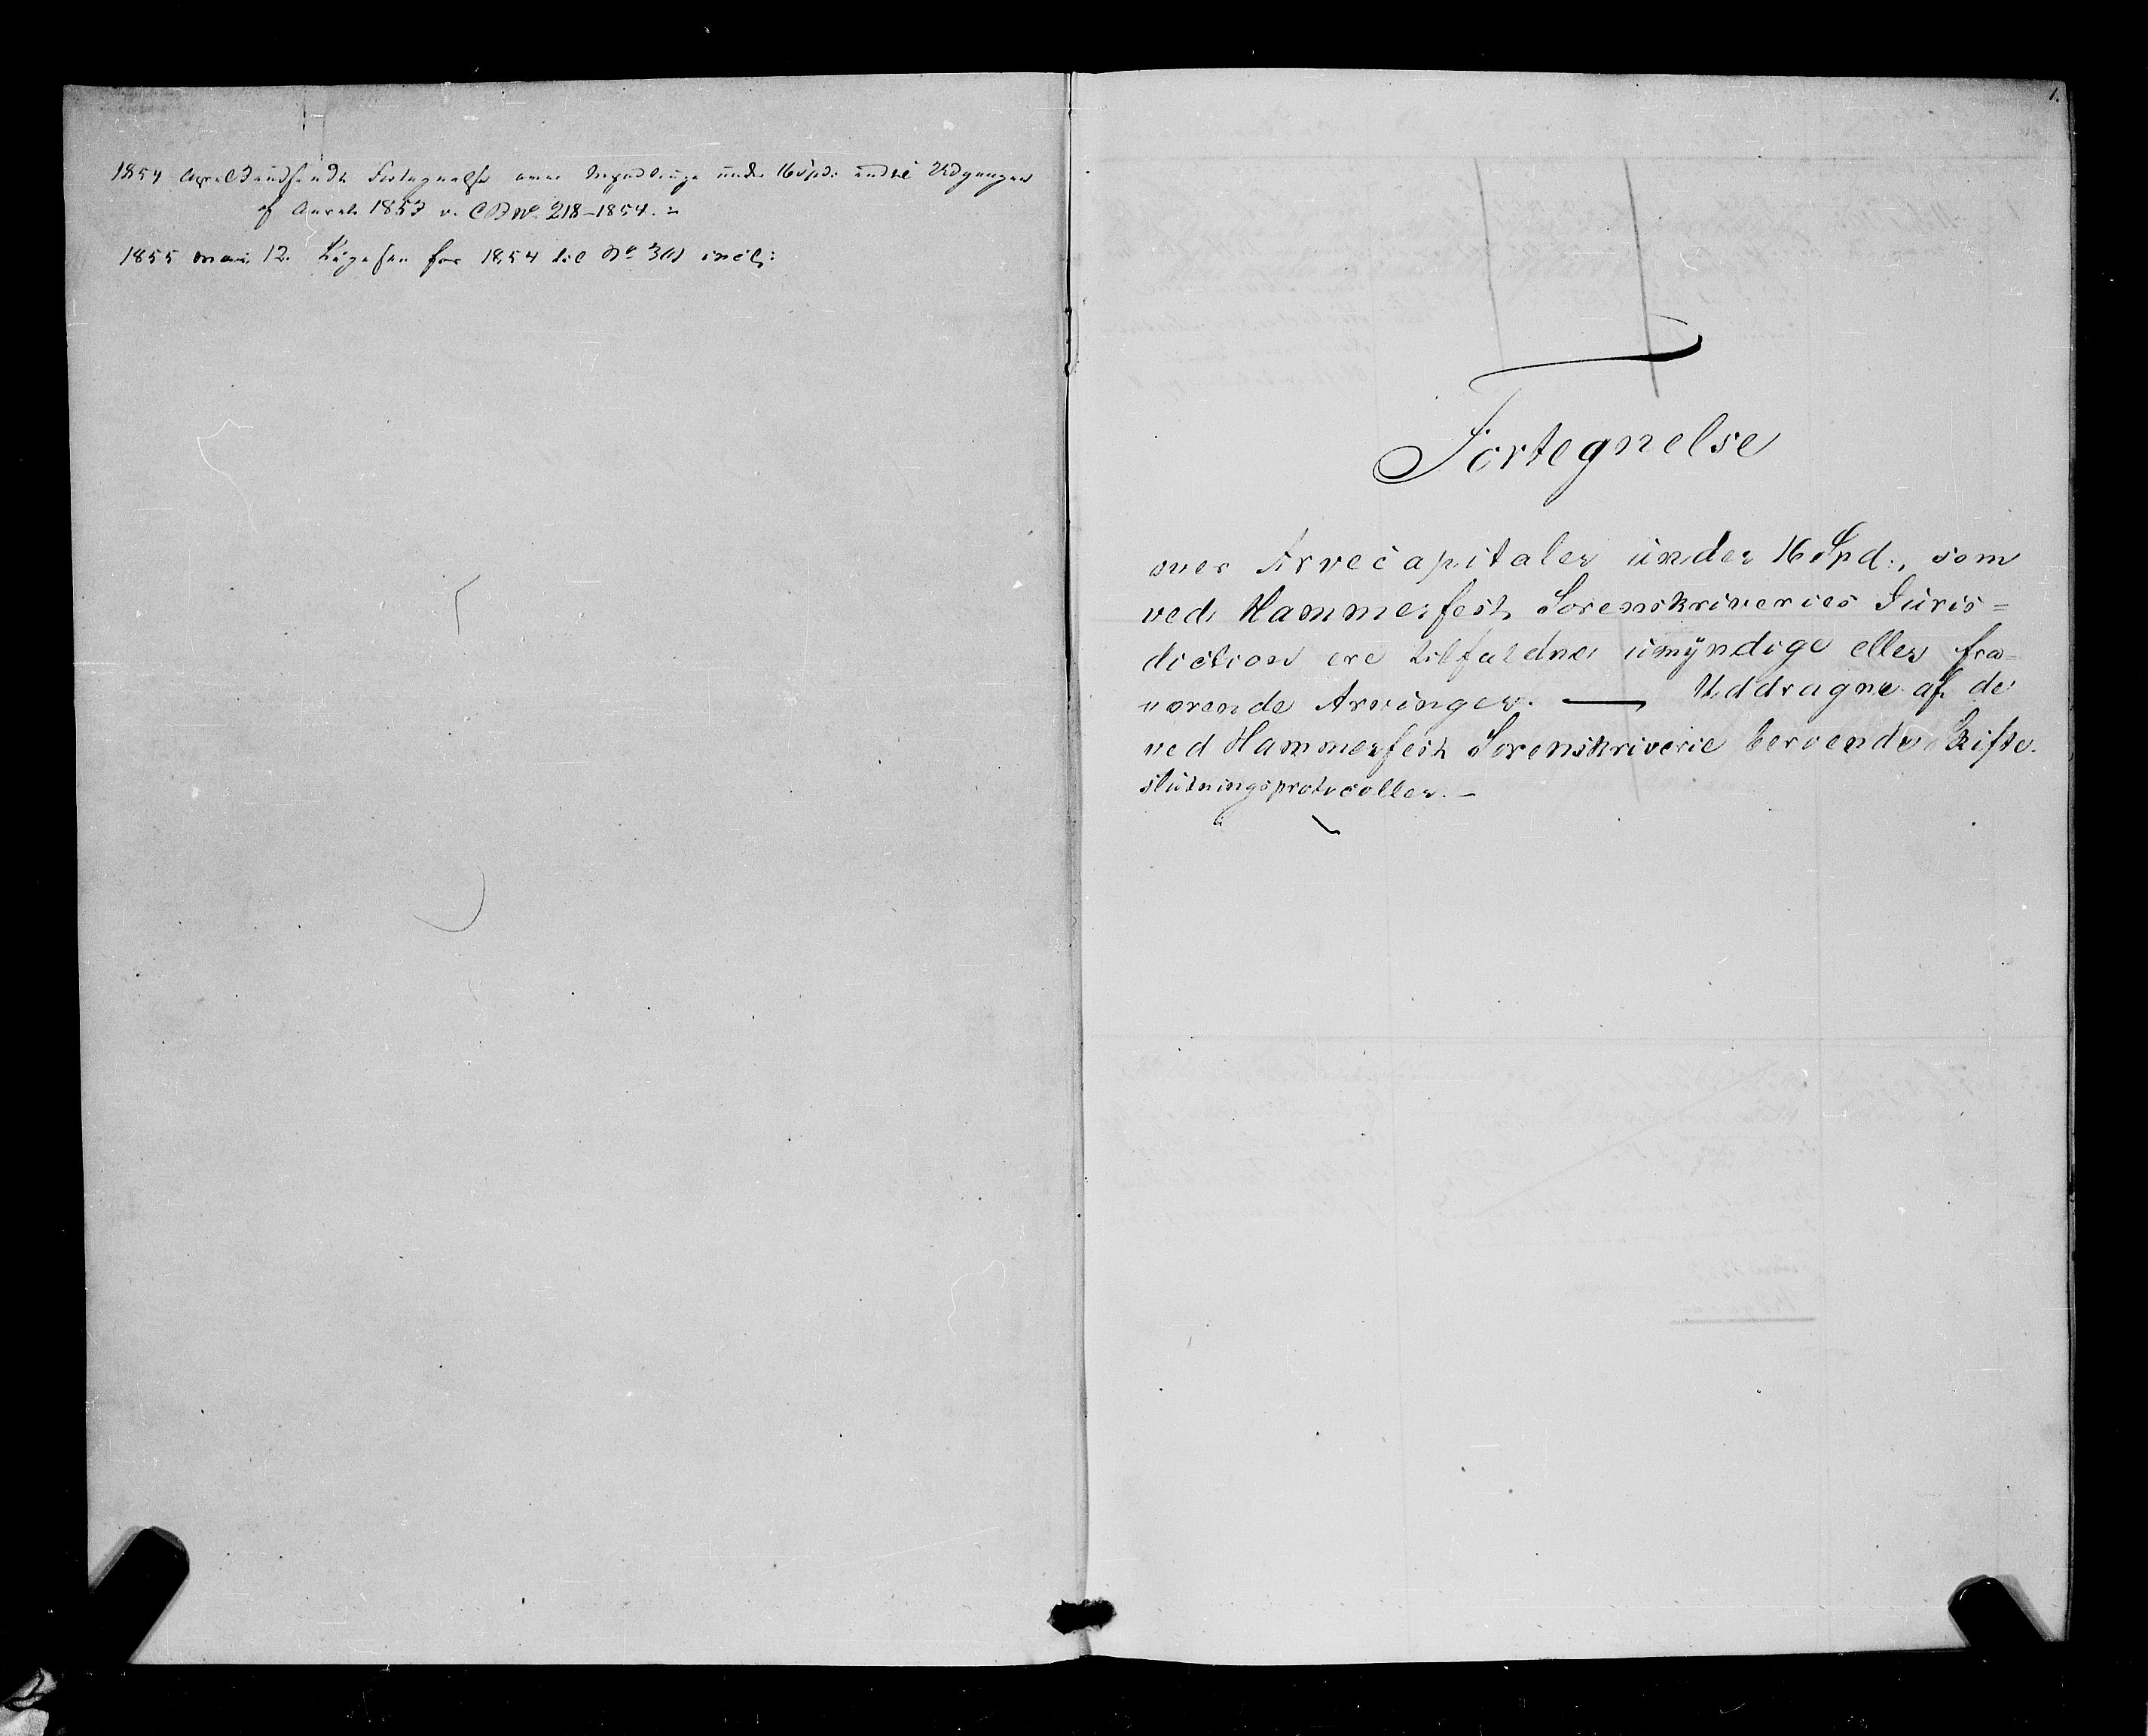 1854 April 3 indsendt Fortegnelse over Myndlinge under 16 Spd: indtil Udgangen
af Aaret 1853 v. CB No 218-1854.
1855 Mai 12. Ligesaa for 1854 til No incl:
1.
Fortegnelse
over Arvecapitaler under 16 Spd., som
ved Hammerfest Sorenskriveries Juris=
diction ere tilfaldne umÿndige eller fra=
værende Arvinger. — Uddragne af de
ved Hammerfest Sorenskriverie beroende Skifte
slutningsprotocoller. –